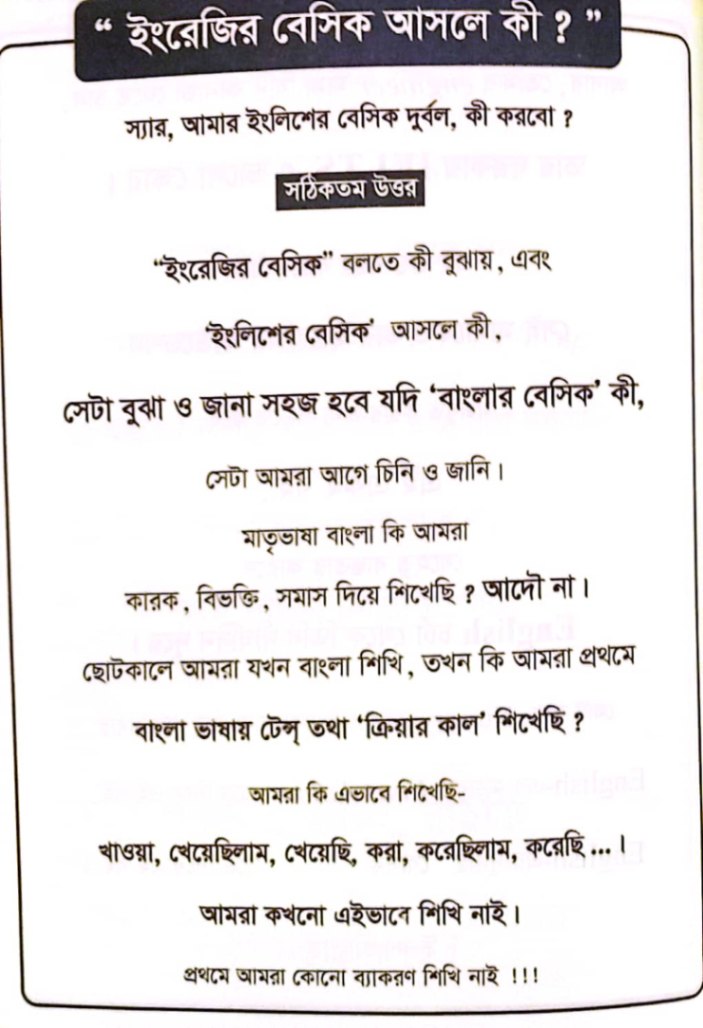 “ ইংরেজির বেসিক আসলে কী ? ”
স্যার, আমার ইংলিশের বেসিক দুর্বল, কী করবো ?
সঠিকতম উত্তর
“ইংরেজির বেসিক” বলতে কী বুঝায়, এবং
‘ইংলিশের বেসিক’ আসলে কী,
সেটা বুঝা ও জানা সহজ হবে যদি ‘বাংলার বেসিক’ কী,
সেটা আমরা আগে চিনি ও জানি।
মাতৃভাষা বাংলা কি আমরা
কারক, বিভক্তি, সমাস দিয়ে শিখেছি ? আদৌ না।
ছোটকালে আমরা যখন বাংলা শিখি, তখন কি আমরা প্রথমে
বাংলা ভাষায় টেন্স্ তথা ‘ক্রিয়ার কাল’ শিখেছি ?
আমরা কি এভাবে শিখেছি-
খাওয়া, খেয়েছিলাম, খেয়েছি, করা, করেছিলাম, করেছি ... ।
আমরা কখনো এইভাবে শিখি নাই।
প্রথমে আমরা কোনো ব্যাকরণ শিখি নাই !!!